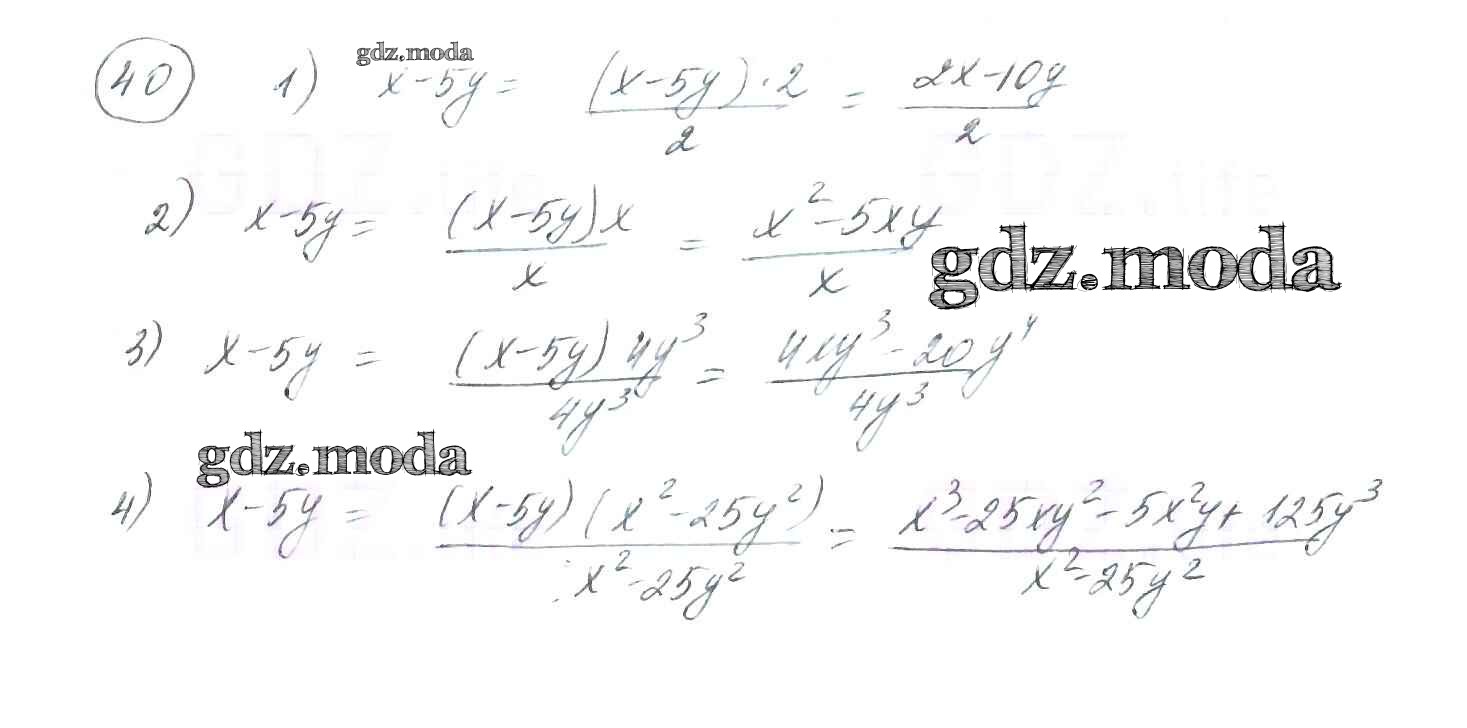 gdz.moda
40 1) x-5y = (x-5y)·2/2 = 2x-10y/2
GDZ.life GDZ.life
2) x-5y = (x-5y)x/x = x²-5xy/x
gdz.moda
3) x-5y = (x-5y)4y³/4y³ = 4xy³-20y⁴/4y³
gdz.moda
4) x-5y = (x-5y)(x²-25y²)/x²-25y² = x³-25xy²-5x²y+125y³/x²-25y²